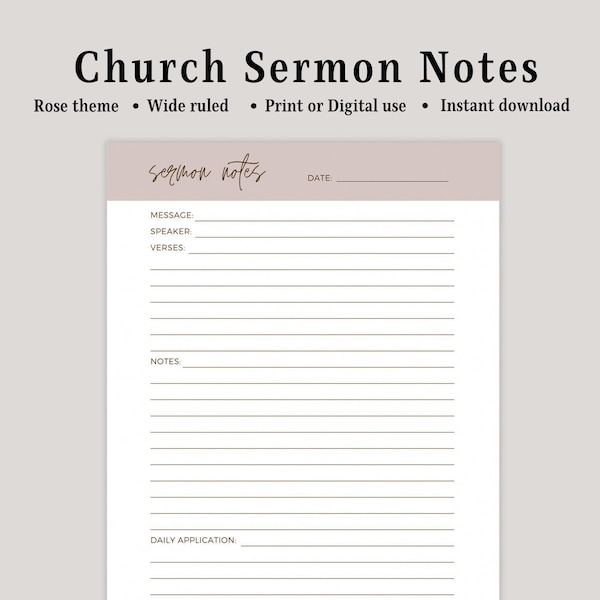 Church Sermon Notes
Rose theme • Wide ruled • Print or Digital use • Instant download
sermon notes DATE:
MESSAGE:
SPEAKER:
VERSES:
NOTES:
DAILY APPLICATION: